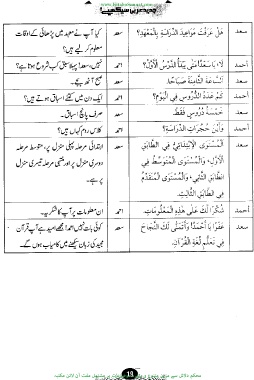 سعد هَلْ عَرَفْتَ مَوَاعِيدَ الدِّرَاسَةِ بِالْمَعْهَدِ؟ سعد کیا آپ نے معہد میں پڑھائی کے اوقات
معلوم کر لیے ہیں؟
أحمد لَا، يَا سَعْدُ! مَتَى يَبْدَأُ الدَّرْسُ الْأَوَّلُ؟ احمد نہیں، سعد! پہلا سبق کب شروع ہوتا ہے؟
سعد السَّاعَةَ الثَّامِنَةَ صَبَاحًا. سعد صبح آٹھ بجے۔
أحمد كَمْ عَدَدُ الدُّرُوسِ فِي الْيَوْمِ؟ احمد ایک دن میں کتنے اسباق ہوتے ہیں؟
سعد خَمْسَةُ دُرُوسٍ فَقَطْ. سعد صرف پانچ اسباق۔
أحمد وَأَيْنَ حُجُرَاتُ الدِّرَاسَةِ؟ احمد کلاس روم کہاں ہیں؟
سعد الْمُسْتَوَى الْاِبْتِدَائِيُّ فِي الطَّابَقِ سعد ابتدائی مرحلہ پہلی منزل پر، متوسط مرحلہ
الْأَوَّلِ، وَالْمُسْتَوَى الْمُتَوَسِّطُ فِي دوسری منزل پر اور منتہی مرحلہ تیسری منزل
الطَّابَقِ الثَّانِي، وَالْمُسْتَوَى الْمُتَقَدِّمُ پر ہے۔
فِي الطَّابَقِ الثَّالِثِ.
أحمد شُكْرًا لَكَ عَلَى هٰذِهِ الْمَعْلُومَاتِ. احمد ان معلومات پر آپ کا شکریہ۔
سعد عَفْوًا يَا أَحْمَدُ! وَأَتَمَنَّى لَكَ النَّجَاحَ سعد کوئی بات نہیں احمد! مجھے امید ہے آپ قرآن
فِي تَعَلُّمِ لُغَةِ الْقُرْآنِ. مجید کی زبان سیکھنے میں کامیاب ہوں گے۔
19